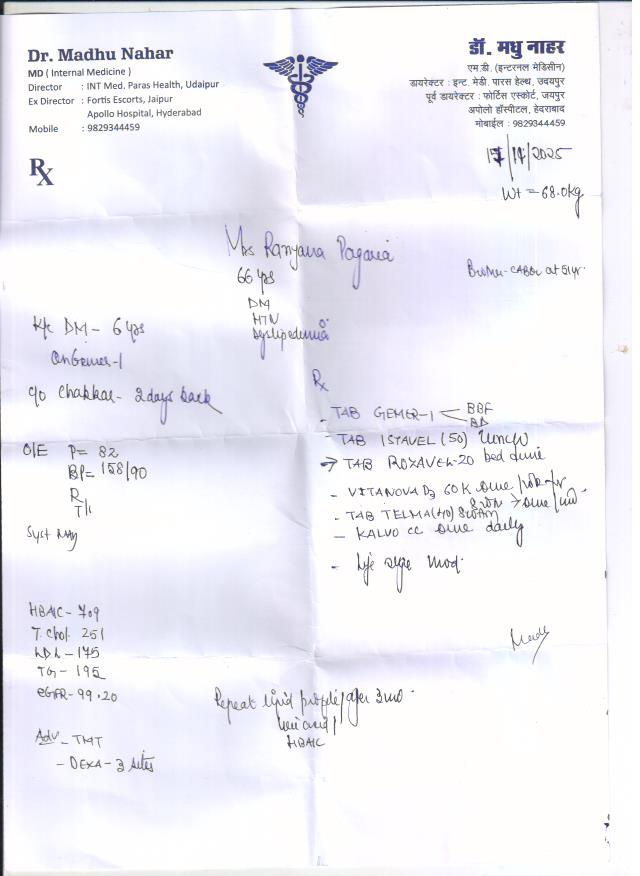 Dr. Madhu Nahar
MD ( Internal Medicine )
Director : INT Med. Paras Health, Udaipur
Ex Director : Fortis Escorts, Jaipur
Apollo Hospital, Hyderabad
Mobile : 9829344459
डॉ. मधु नाहर
एम.डी. (इन्टरनल मेडिसीन)
डायरेक्टर : इन्ट. मेडी. पारस हेल्थ, उदयपुर
पूर्व डायरेक्टर : फोर्टिस एस्कोर्ट, जयपुर
अपोलो हॉस्पीटल, हेदराबाद
मोबाईल : 9829344459
Rx
17/11/2025
Wt = 68.0kg
Mrs Ranjana Pagaria
66 yrs
DM
HTN
Dyslipedemia
Brother-CABG at 51yr.
K/c DM - 6 yrs
On Gemer-1
c/o Chakkar - 2 days back
O/E P = 82
BP = 158/90
R
T
Syst
Rx
- TAB GEMER-1 BBF
BD
- TAB ISTAVEL (50) lunch
→ TAB ROXAVEL-20 bed time
- VITANOVA D3 60K
- TAB TELMA (40) 8:00AM
- KALVO CC once daily
- Life style mod.
HBA1C - 7.9
T. Chol. 251
LDL - 175
TG - 195
eGFR - 99.20
Adv - TMT
- DEXA - 3 sites
Repeat lipid profile / after 3 mo
HBA1C